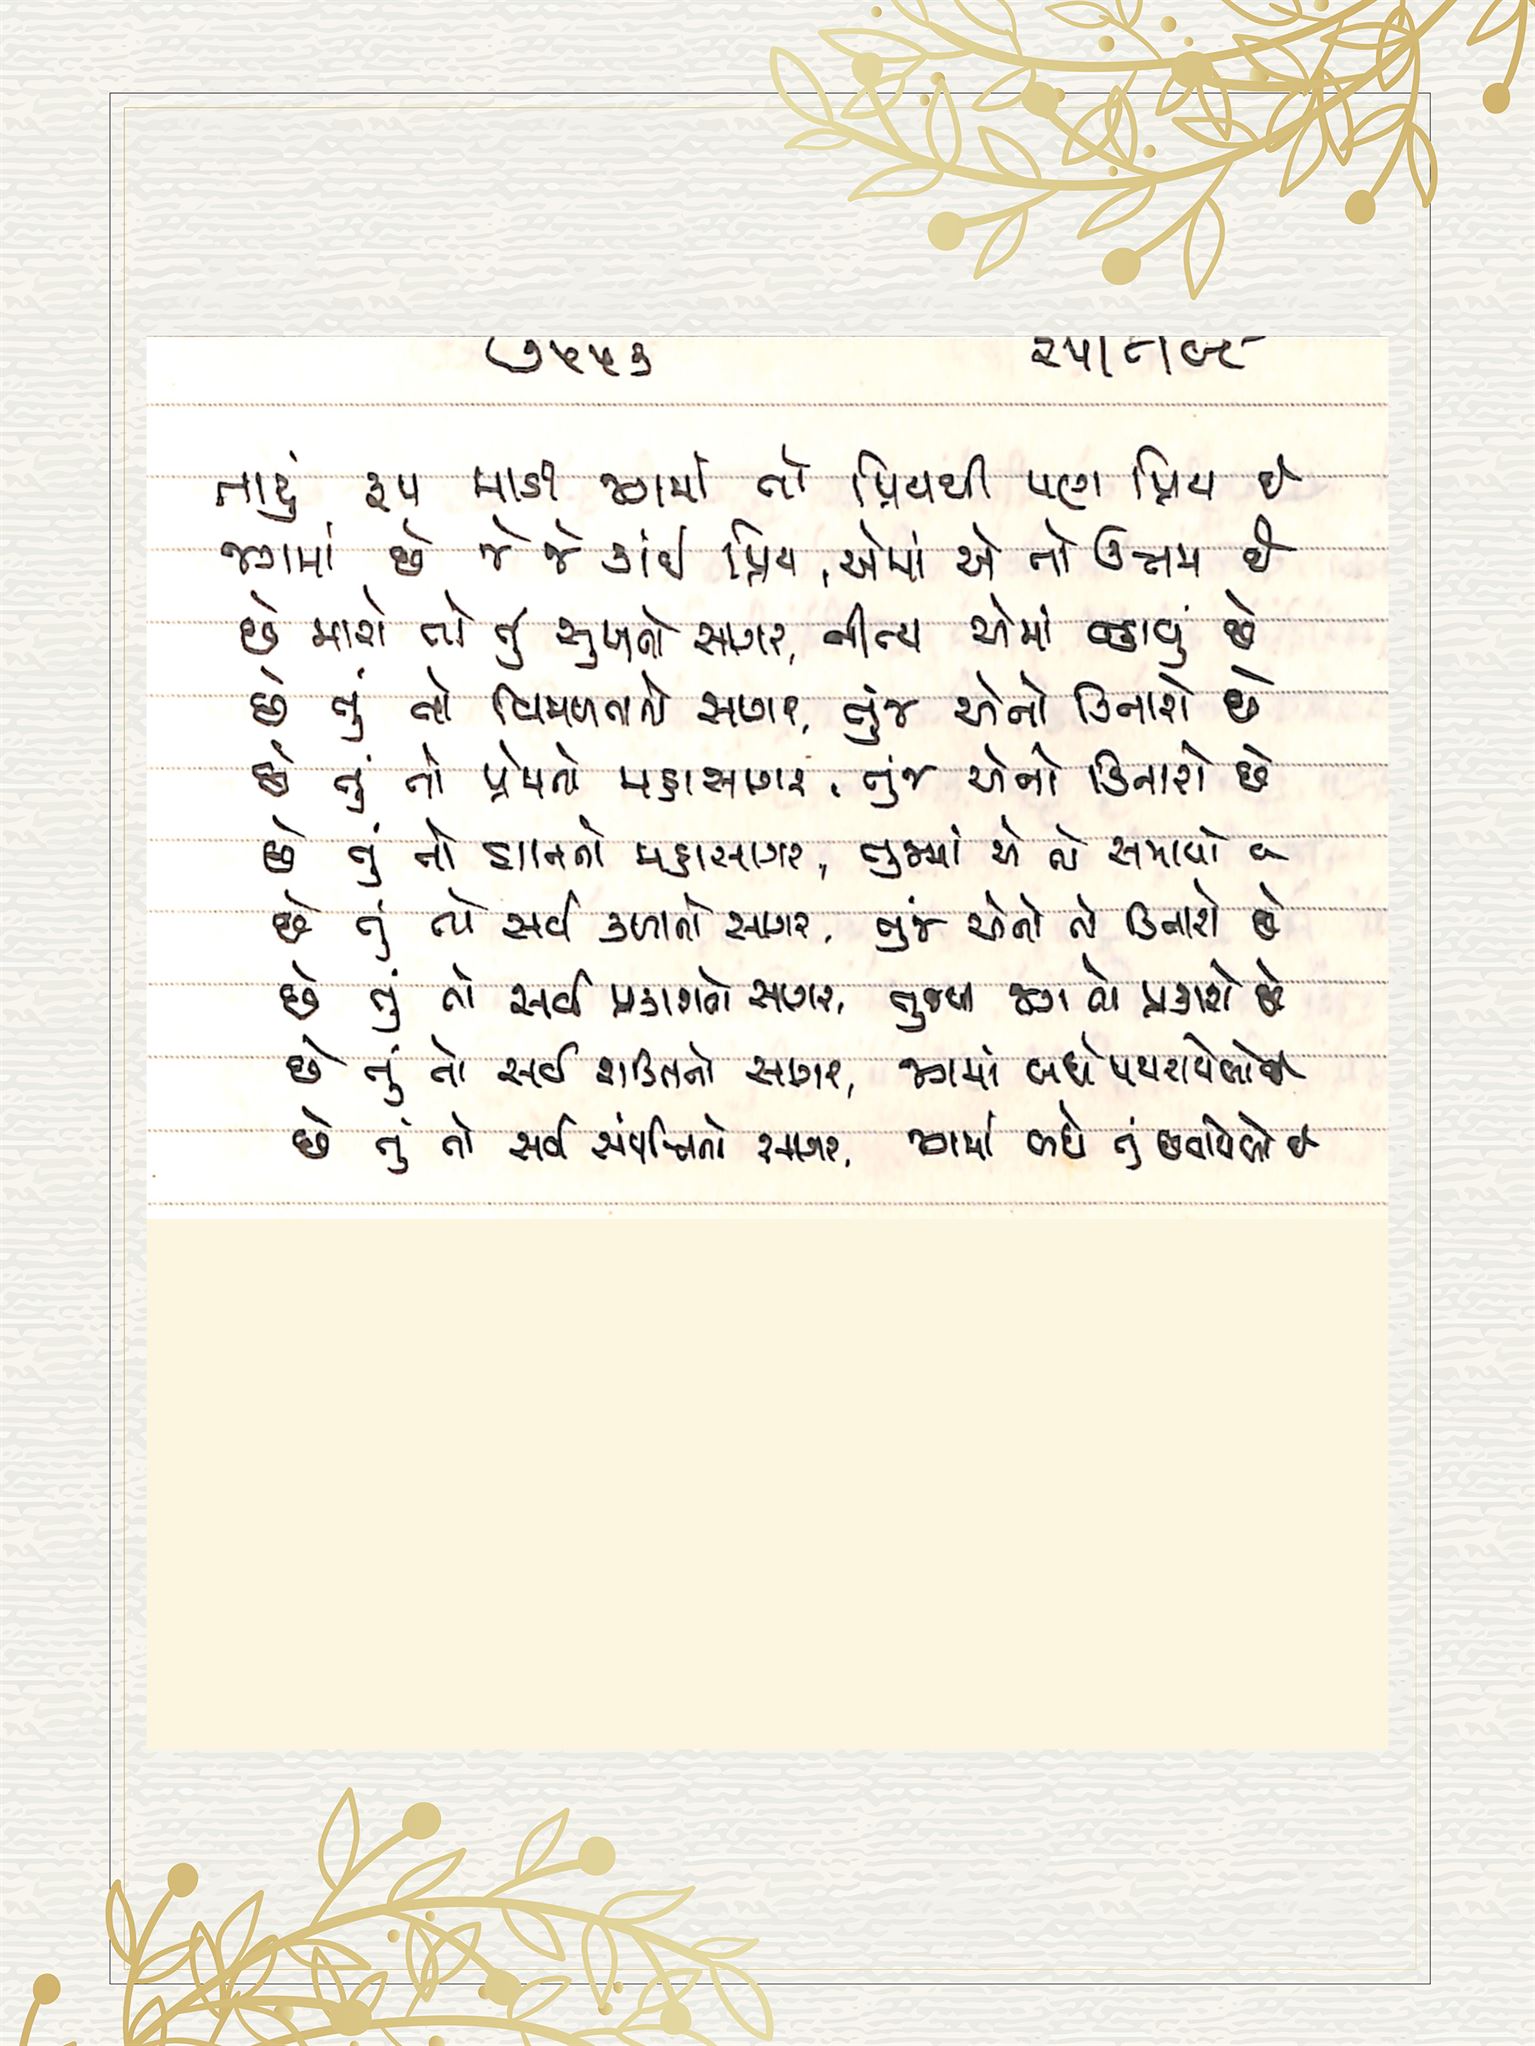 ૭૫૫૩
તારું રૂપ માડી જગમાં તો પ્રિયથી પણ પ્રિય છે
જગમાં છે જે જે કાંઈ પ્રિય, એમાં એ તો ઉત્તમ છે
છે માડી તો તું સુખનો સાગર, નીત્ય એમાં ન્હાવું છે
છે તું તો નિર્મળતાનો સાગર, તુંજ એનો કિનારો છે
છે તું તો પ્રેમનો મહાસાગર, તુંજ એનો કિનારો છે
છે તું તો જ્ઞાનનો મહાસાગર, તુજમાં એ તો સમાયો છે
છે તું તો સર્વ કળાનો સાગર, તુંજ એનો તો કિનારો છે
છે તું તો સર્વ પ્રકાશનો સાગર, તુજથી જગ તો પ્રકાશે છે
છે તું તો સર્વ શક્તિનો સાગર, જગમાં બધે પથરાયેલો છે
છે તું તો સર્વ સંપત્તિનો સાગર, જગમાં બધે તું છવાયેલો છે